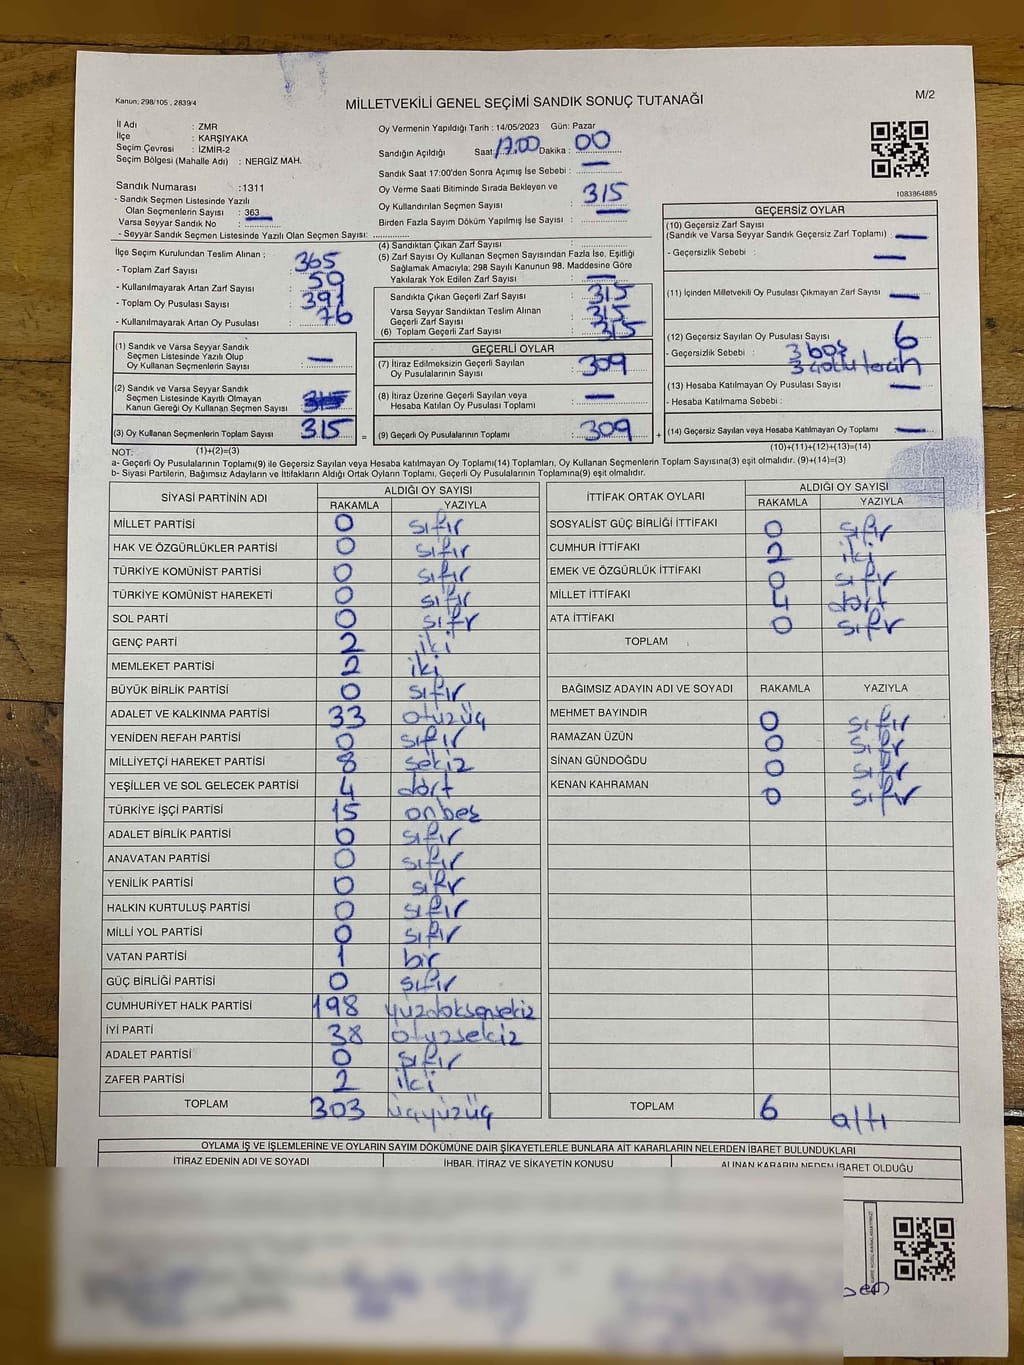 Kanun; 298/105 , 2839/4
MİLLETVEKİLİ GENEL SEÇİMİ SANDIK SONUÇ TUTANAĞI
M/2
İl Adı : ZMR
İlçe : KARŞIYAKA
Seçim Çevresi : İZMİR-2
Seçim Bölgesi (Mahalle Adı) : NERGİZ MAH.
Sandık Numarası :1311
- Sandık Seçmen Listesinde Yazılı
Olan Seçmenlerin Sayısı : 363
Varsa Seyyar Sandık No :
- Seyyar Sandık Seçmen Listesinde Yazılı Olan Seçmen Sayısı:
Oy Vermenin Yapıldığı Tarih : 14/05/2023 Gün: Pazar
Sandığın Açıldığı Saat: 17.00 Dakika : 00
Sandık Saat 17:00'den Sonra Açımış İse Sebebi : —
Oy Verme Saati Bitiminde Sırada Bekleyen ve
Oy Kullandırılan Seçmen Sayısı : 315
Birden Fazla Sayım Döküm Yapılmış İse Sayısı : —
1083864885
İlçe Seçim Kurulundan Teslim Alınan ;
- Toplam Zarf Sayısı : 365
- Kullanılmayarak Artan Zarf Sayısı : 50
- Toplam Oy Pusulası Sayısı : 391
- Kullanılmayarak Artan Oy Pusulası : 76
(1) Sandık ve Varsa Seyyar Sandık
Seçmen Listesinde Yazılı Olup
Oy Kullanan Seçmenlerin Sayısı : —
(2) Sandık ve Varsa Seyyar Sandık
Seçmen Listesinde Kayıtlı Olmayan
Kanun Gereği Oy Kullanan Seçmen Sayısı : 315
(3) Oy Kullanan Seçmenlerin Toplam Sayısı : 315
(4) Sandıktan Çıkan Zarf Sayısı :
(5) Zarf Sayısı Oy Kullanan Seçmen Sayısından Fazla İse, Eşitliği
Sağlamak Amacıyla; 298 Sayılı Kanunun 98. Maddesine Göre
Yakılarak Yok Edilen Zarf Sayısı : —
Sandıkta Çıkan Geçerli Zarf Sayısı : 315
Varsa Seyyar Sandıktan Teslim Alınan
Geçerli Zarf Sayısı : 315
(6) Toplam Geçerli Zarf Sayısı : 315
GEÇERLİ OYLAR
(7) İtiraz Edilmeksizin Geçerli Sayılan
Oy Pusulalarının Sayısı : 309
(8) İtiraz Üzerine Geçerli Sayılan veya
Hesaba Katılan Oy Pusulası Toplamı : —
= (9) Geçerli Oy Pusulalarının Toplamı : 309
GEÇERSİZ OYLAR
(10) Geçersiz Zarf Sayısı
(Sandık ve Varsa Seyyar Sandık Geçersiz Zarf Toplamı) : —
- Geçersizlik Sebebi : —
(11) İçinden Milletvekili Oy Pusulası Çıkmayan Zarf Sayısı : —
(12) Geçersiz Sayılan Oy Pusulası Sayısı : 6
- Geçersizlik Sebebi : 3 boş
3 çoklu tercih
(13) Hesaba Katılmayan Oy Pusulası Sayısı : —
- Hesaba Katılmama Sebebi :
+ (14) Geçersiz Sayılan veya Hesaba Katılmayan Oy Toplamı : —
NOT: (1)+(2)=(3)
(10)+(11)+(12)+(13)=(14)
a- Geçerli Oy Pusulalarının Toplamı(9) ile Geçersiz Sayılan veya Hesaba katılmayan Oy Toplamı(14) Toplamları, Oy Kullanan Seçmenlerin Toplam Sayısına(3) eşit olmalıdır. (9)+(14)=(3)
b- Siyasi Partilerin, Bağımsız Adayların ve İttifakların Aldığı Ortak Oyların Toplamı, Geçerli Oy Pusulalarının Toplamına(9) eşit olmalıdır.
SİYASİ PARTİNİN ADI ALDIĞI OY SAYISI
RAKAMLA YAZIYLA
MİLLET PARTİSİ 0 sıfır
HAK VE ÖZGÜRLÜKLER PARTİSİ 0 sıfır
TÜRKİYE KOMÜNİST PARTİSİ 0 sıfır
TÜRKİYE KOMÜNİST HAREKETİ 0 sıfır
SOL PARTİ 0 sıfır
GENÇ PARTİ 2 iki
MEMLEKET PARTİSİ 2 iki
BÜYÜK BİRLİK PARTİSİ 0 sıfır
ADALET VE KALKINMA PARTİSİ 33 otuzüç
YENİDEN REFAH PARTİSİ 0 sıfır
MİLLİYETÇİ HAREKET PARTİSİ 8 sekiz
YEŞİLLER VE SOL GELECEK PARTİSİ 4 dört
TÜRKİYE İŞÇİ PARTİSİ 15 onbeş
ADALET BİRLİK PARTİSİ 0 sıfır
ANAVATAN PARTİSİ 0 sıfır
YENİLİK PARTİSİ 0 sıfır
HALKIN KURTULUŞ PARTİSİ 0 sıfır
MİLLİ YOL PARTİSİ 0 sıfır
VATAN PARTİSİ 1 bir
GÜÇ BİRLİĞİ PARTİSİ 0 sıfır
CUMHURİYET HALK PARTİSİ 198 yüzdoksensekiz
İYİ PARTİ 38 otuzsekiz
ADALET PARTİSİ 0 sıfır
ZAFER PARTİSİ 2 iki
TOPLAM 303 üçyüzüç
İTTİFAK ORTAK OYLARI ALDIĞI OY SAYISI
RAKAMLA YAZIYLA
SOSYALİST GÜÇ BİRLİĞİ İTTİFAKI 0 sıfır
CUMHUR İTTİFAKI 2 iki
EMEK VE ÖZGÜRLÜK İTTİFAKI 0 sıfır
MİLLET İTTİFAKI 4 dört
ATA İTTİFAKI 0 sıfır
TOPLAM
BAĞIMSIZ ADAYIN ADI VE SOYADI RAKAMLA YAZIYLA
MEHMET BAYINDIR 0 sıfır
RAMAZAN ÜZÜN 0 sıfır
SİNAN GÜNDOĞDU 0 sıfır
KENAN KAHRAMAN 0 sıfır
TOPLAM 6 altı
OYLAMA İŞ VE İŞLEMLERİNE VE OYLARIN SAYIM DÖKÜMÜNE DAİR ŞİKAYETLERLE BUNLARA AİT KARARLARIN NELERDEN İBARET BULUNDUKLARI
İTİRAZ EDENİN ADI VE SOYADI İHBAR, İTİRAZ VE ŞİKAYETİN KONUSU ALINAN KARARIN NEDEN İBARET OLDUĞU